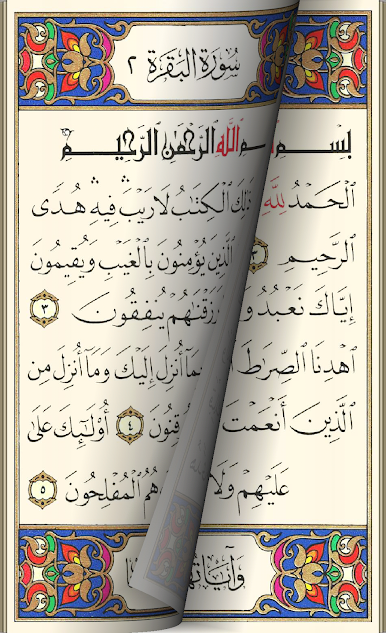 سُورَةُ البَقَرَةِ ٢
بِسْمِ ٱللَّهِ ٱلرَّحْمَٰنِ ٱلرَّحِيمِ
ٱلْحَمْدُ لِلَّهِ ذَٰلِكَ ٱلْكِتَٰبُ لَا رَيْبَ فِيهِ هُدًى
ٱلرَّحِيمِ ٱلَّذِينَ يُؤْمِنُونَ بِٱلْغَيْبِ وَيُقِيمُونَ
إِيَّاكَ نَعْبُدُ وَ رَزَقْنَٰهُمْ يُنفِقُونَ ٣
ٱهْدِنَا ٱلصِّرَٰطَ بِمَآ أُنزِلَ إِلَيْكَ وَمَآ أُنزِلَ مِن
ٱلَّذِينَ أَنْعَمْتَ قِنُونَ ٤ أُو۟لَٰٓئِكَ عَلَىٰ
عَلَيْهِمْ وَلَا هُمُ ٱلْمُفْلِحُونَ ٥
وَآيَاتُهَا